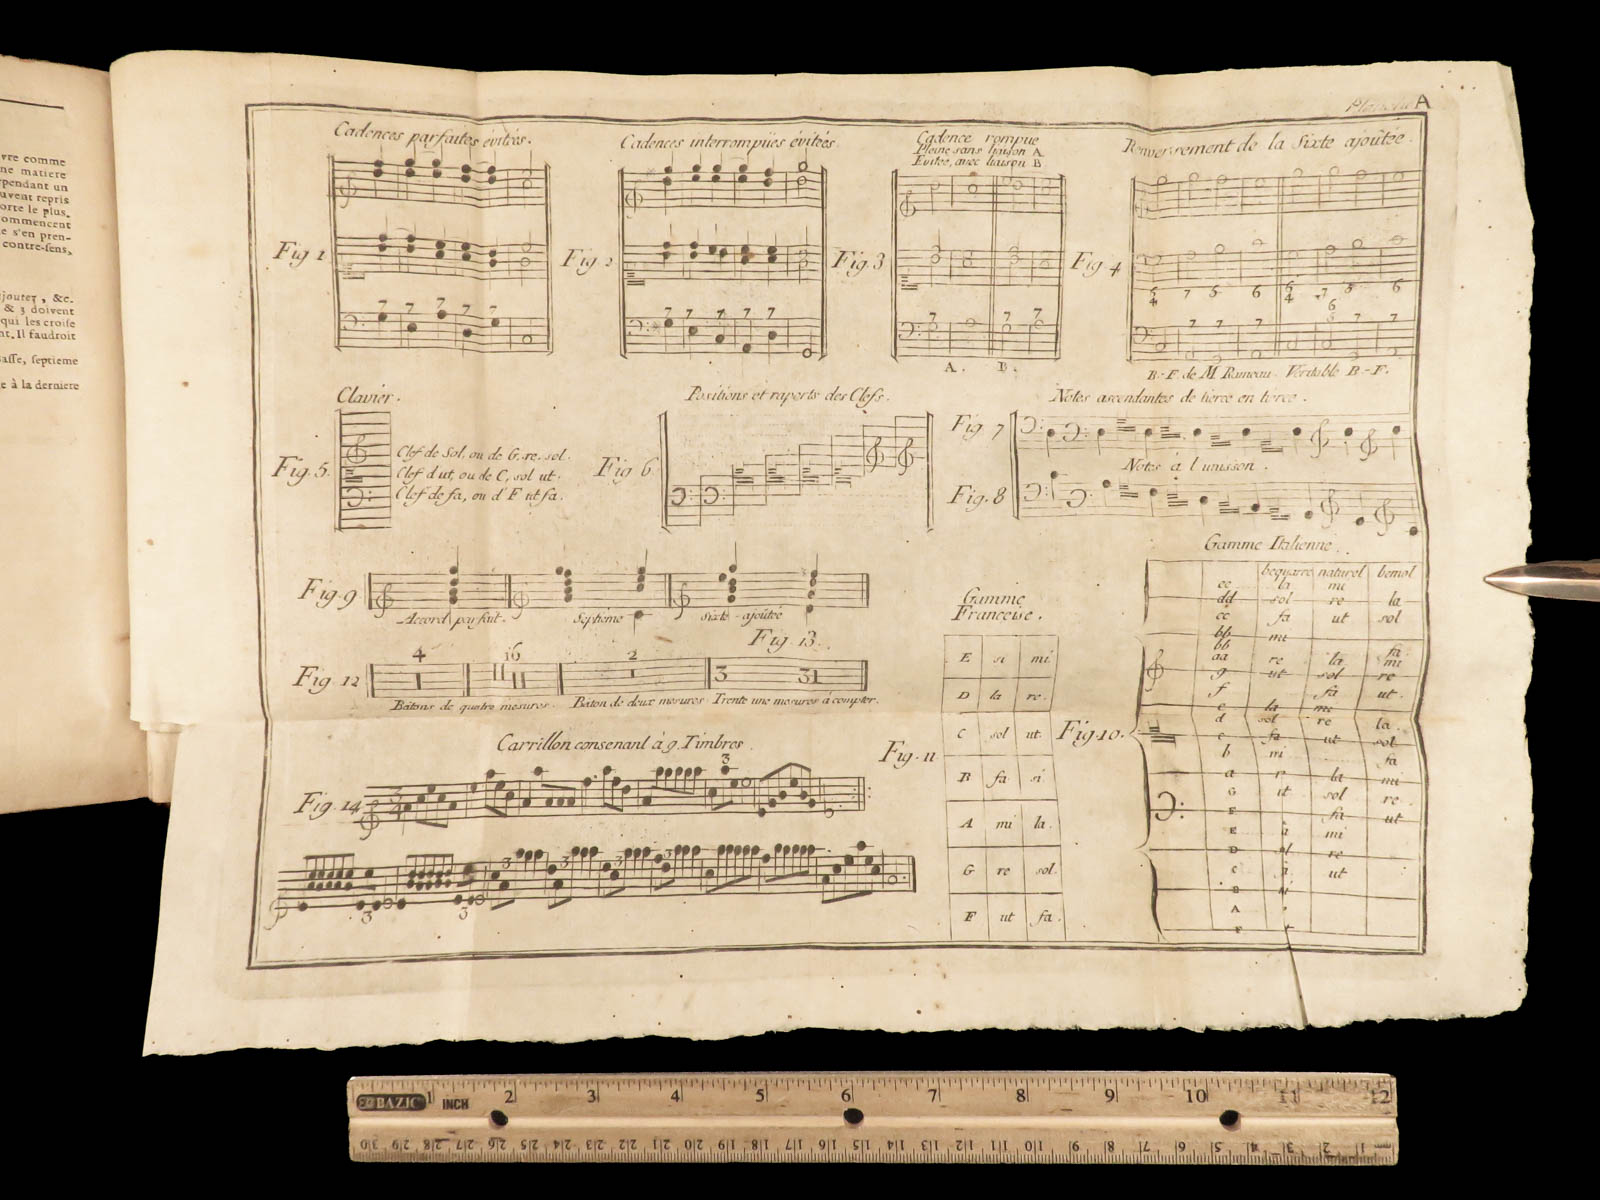 vre comme
ne matiere
ependant un
uvent repris
orte le plus.
ommencent
e s'en pren-
contre-sens,
joutez, &c.
& 3 doivent
qui les croise
nt. Il faudroit
asse, septieme
e à la derniere
Planche A
Cadences parfaites évitées.
Fig 1
Cadences interrompües évitées
Fig 2
Cadence rompue
Pleine sans liaison A
Evitée, avec liaison B.
Fig. 3
A. B.
Renversement de la Sixte ajoûtée.
Fig 4
B.-F. de M. Rameau. Véritable B.-F.
Clavier.
Fig. 5.
Clef de Sol, ou de G, re, sol.
Clef d ut, ou de C, sol ut.
Clef de fa, ou d'F ut fa.
Positions et raports des Clefs.
Fig 6
Notes ascendantes de tierce en tierce.
Fig. 7
Notes à l unisson.
Fig. 8
Fig. 9
Accord parfait. Septième Sixte-ajoûtée
Fig. 13.
Fig. 12
4 16 2 3 31
Bâtons de quatre mesures. Bâton de deux mesures Trente une mesures à compter.
Carrillon consonant à 9. Timbres.
Fig. 14
Gamme
Françoise.
Fig. 11
E si mi
D la re.
C sol ut
B fa si
A mi la.
G re sol.
F ut fa.
Gamme Italienne.
Fig. 10.
bequarre naturel bemol
ee la mi
dd sol re la
cc fa ut sol
bb mi
bb fa
aa re la mi
g ut sol re
f fa ut
e la mi
d sol re la
c fa ut sol
b mi fa
a re la mi
G ut sol re
F fa ut
E la mi
D sol re
C fa ut
B mi
A re
BAZIC
INCH
1 2 3 4 5 6 7 8 9 10 11 12
30 29 28 27 26 25 24 23 22 21 20 19 18 17 16 15 14 13 12 11 10 9 8 7 6 5 4 3 2 1